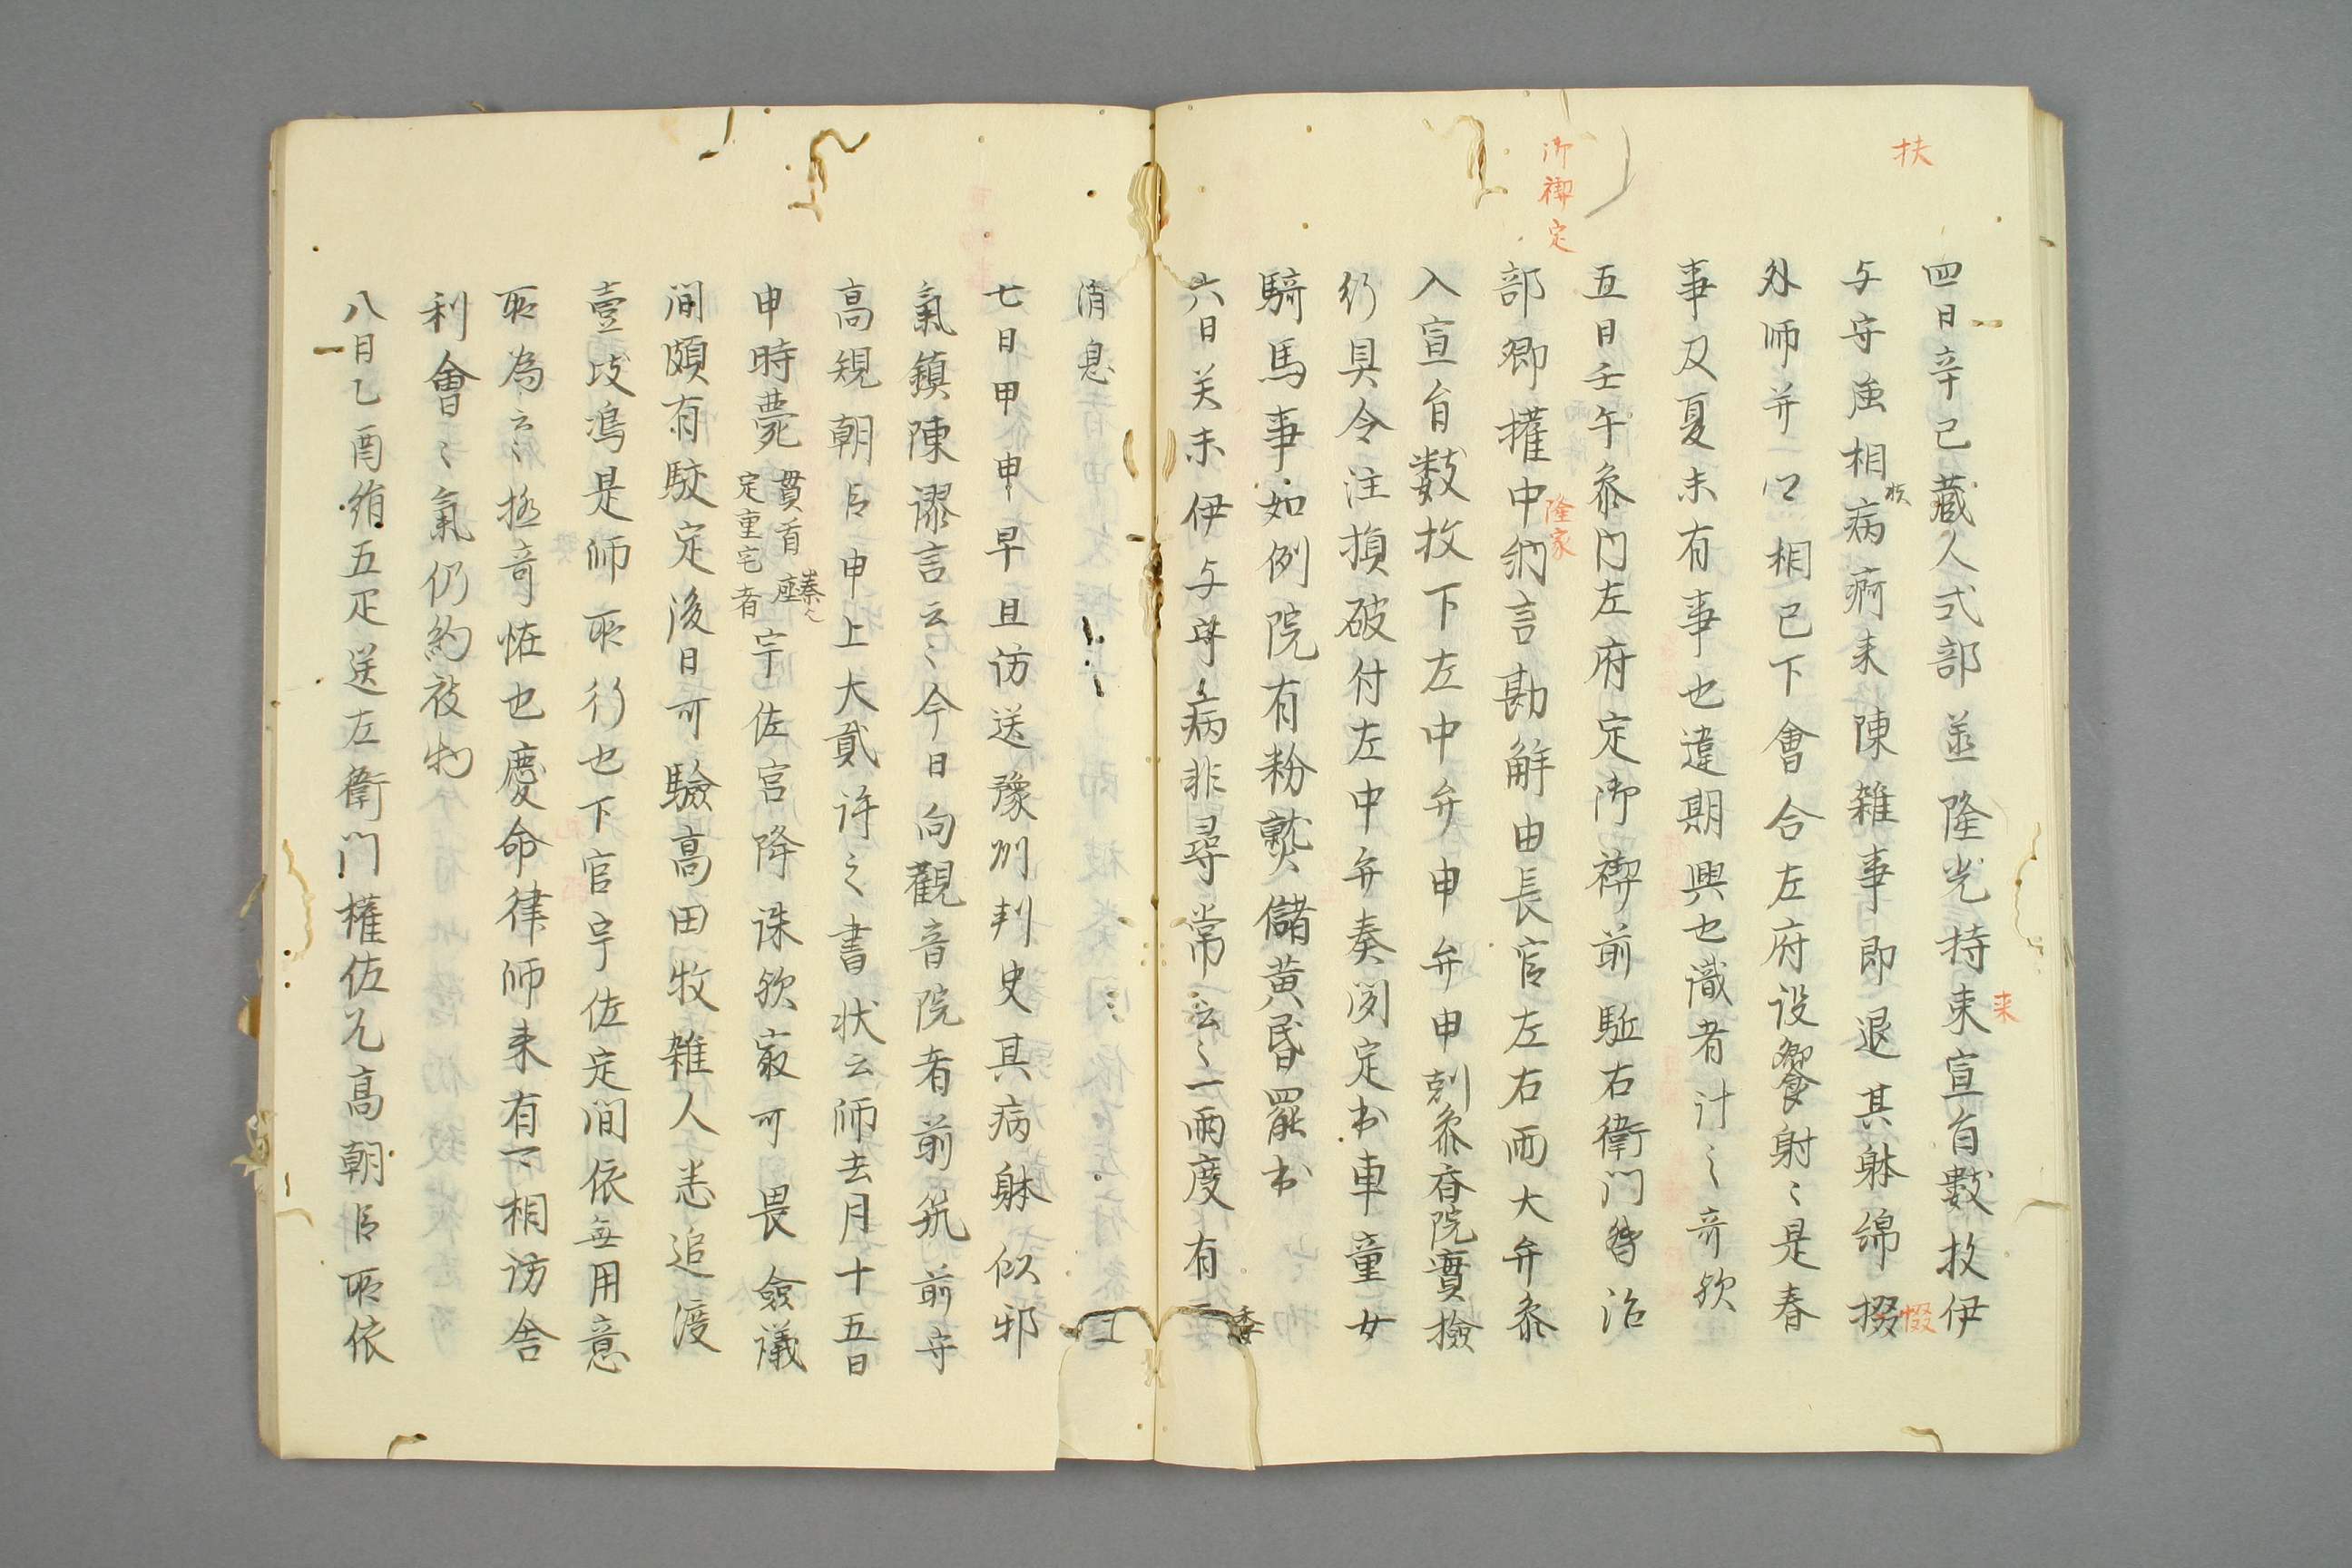 扶
四日辛巳蔵人式部丞隆光持来宣旨数枚伊
来
与守強相扶病痾来陳雑事即退其躰綿惙
惙
外師并二相已下會合左府設饗射〻是春
事及夏未有事也違期興也識者計之奇欤
御禊定
五日壬午参内左府定御禊前駈右衛門督治
部卿権中納言勘解由長官左右両大弁参
隆家
入宣旨数枚下左中弁申弁申剋参斎院實撿
行具令注損破付左中弁奏聞定出車童女
騎馬事如例院有粉熟儲黄昏罷出
六日癸未伊与守病非尋常云〻一両度有
委
消息
七日甲申早旦訪送豫州判史其病躰似邪
氣鎮陳謬言云〻今日向觀音院者前筑前守
高規朝臣申上大貳許之書状云師去月十五日
申時薨貫首秦定重宅者座宇佐宮降誅欤最可畏僉議
間頗有駮定後日可驗高田牧雑人恙追渡
壹岐嶋是師所行也下官宇佐定間依無用意
所為云〻極奇恠也慶命律師来有下相訪舎
利會〻氣仍約被物
八日乙酉絹五疋送左衛門権佐允高朝臣所依